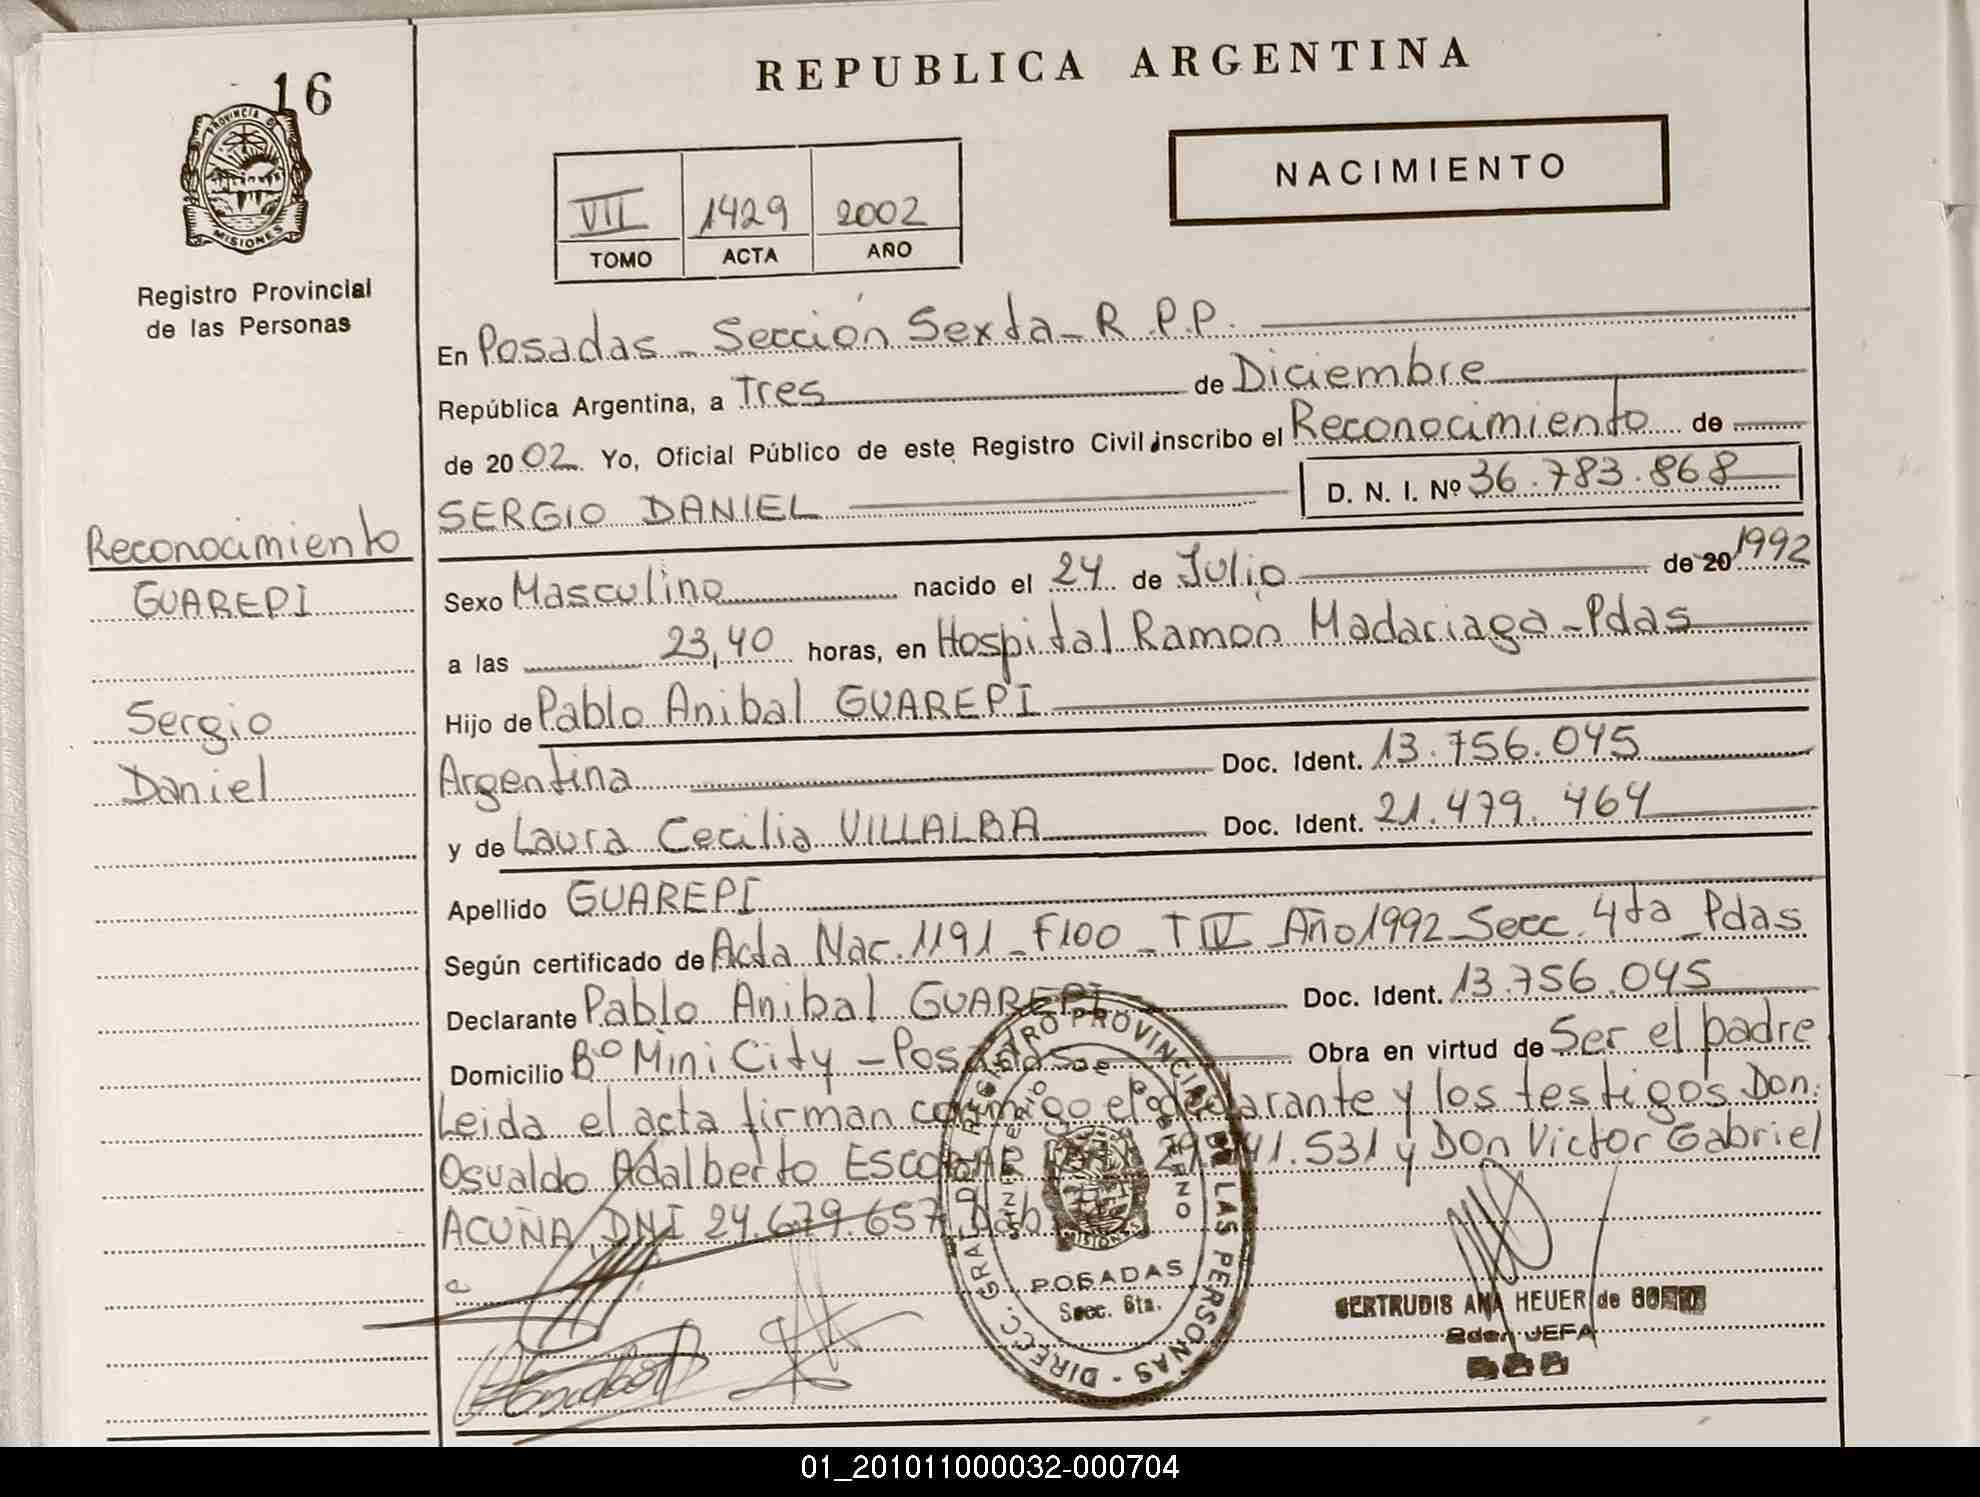 16
PROVINCIA DE
MISIONES
Registro Provincial
de las Personas
REPUBLICA ARGENTINA
NACIMIENTO
VII 1429 2002
TOMO ACTA AÑO
En Posadas - Sección Sexta - R.P.P.
República Argentina, a Tres de Diciembre
de 2002 Yo, Oficial Público de este Registro Civil inscribo el Reconocimiento de
SERGIO DANIEL D. N. I. Nº 36.783.868
Reconocimiento
GUAREPI
Sergio
Daniel
Sexo Masculino nacido el 24 de Julio de 20 1992
a las 23,40 horas, en Hospital Ramón Madariaga - Pdas
Hijo de Pablo Anibal GUAREPI
Argentina Doc. Ident. 13.756.045
y de Laura Cecilia VILLALBA Doc. Ident. 21.479.464
Apellido GUAREPI
Según certificado de Acta Nac. 1191 - F100 - T IV Año 1992 Secc. 4ta Pdas
Declarante Pablo Anibal GUAREPI Doc. Ident. 13.756.045
Domicilio Bº Mini City - Posadas Obra en virtud de Ser el padre
Leida el acta firman conmigo el declarante y los testigos Don:
Osvaldo Adalberto ESCOBAR 41.531 y Don Victor Gabriel
ACUÑA DNI 24.679.657
DIRECC. GRAL. DEL REGISTRO PROVINCIAL DE LAS PERSONAS
MINISTERIO DE GOBIERNO
MISIONES
POSADAS
Secc. 6ta.
GERTRUDIS ANA HEUER de
JEFA
01_201011000032-000704